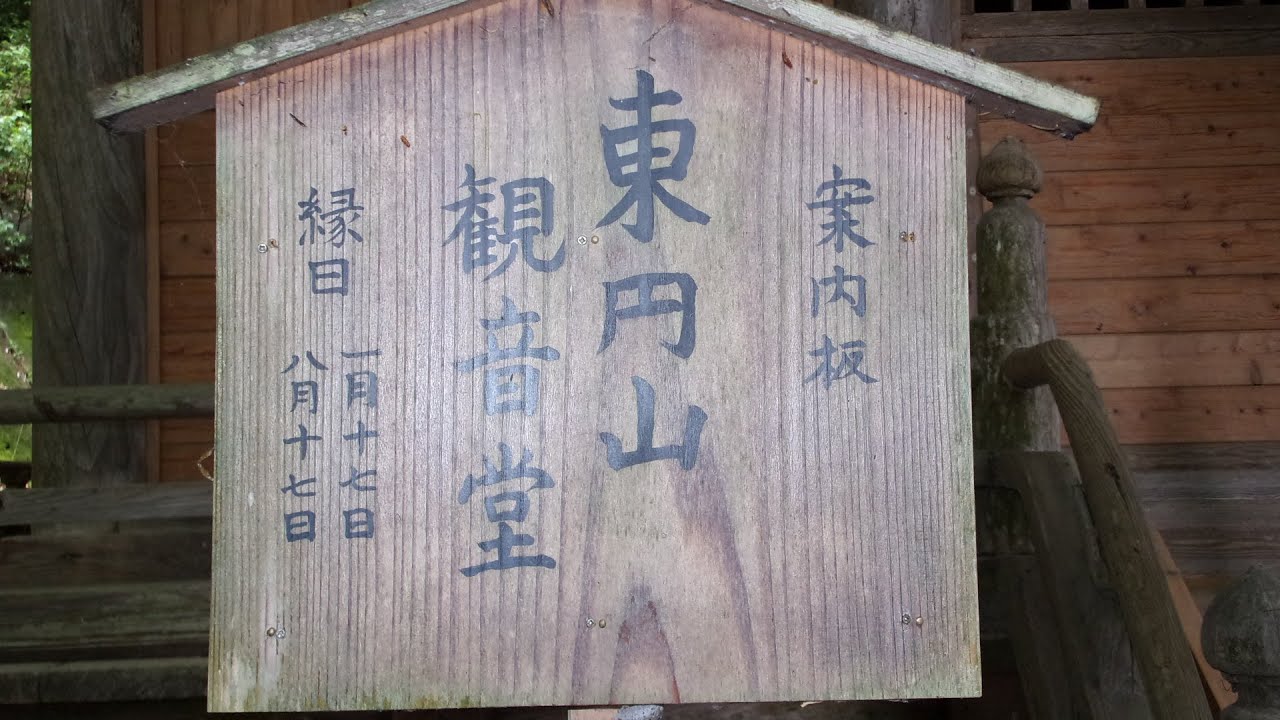 案内板
東円山
観音堂
縁日
一月十七日
八月十七日